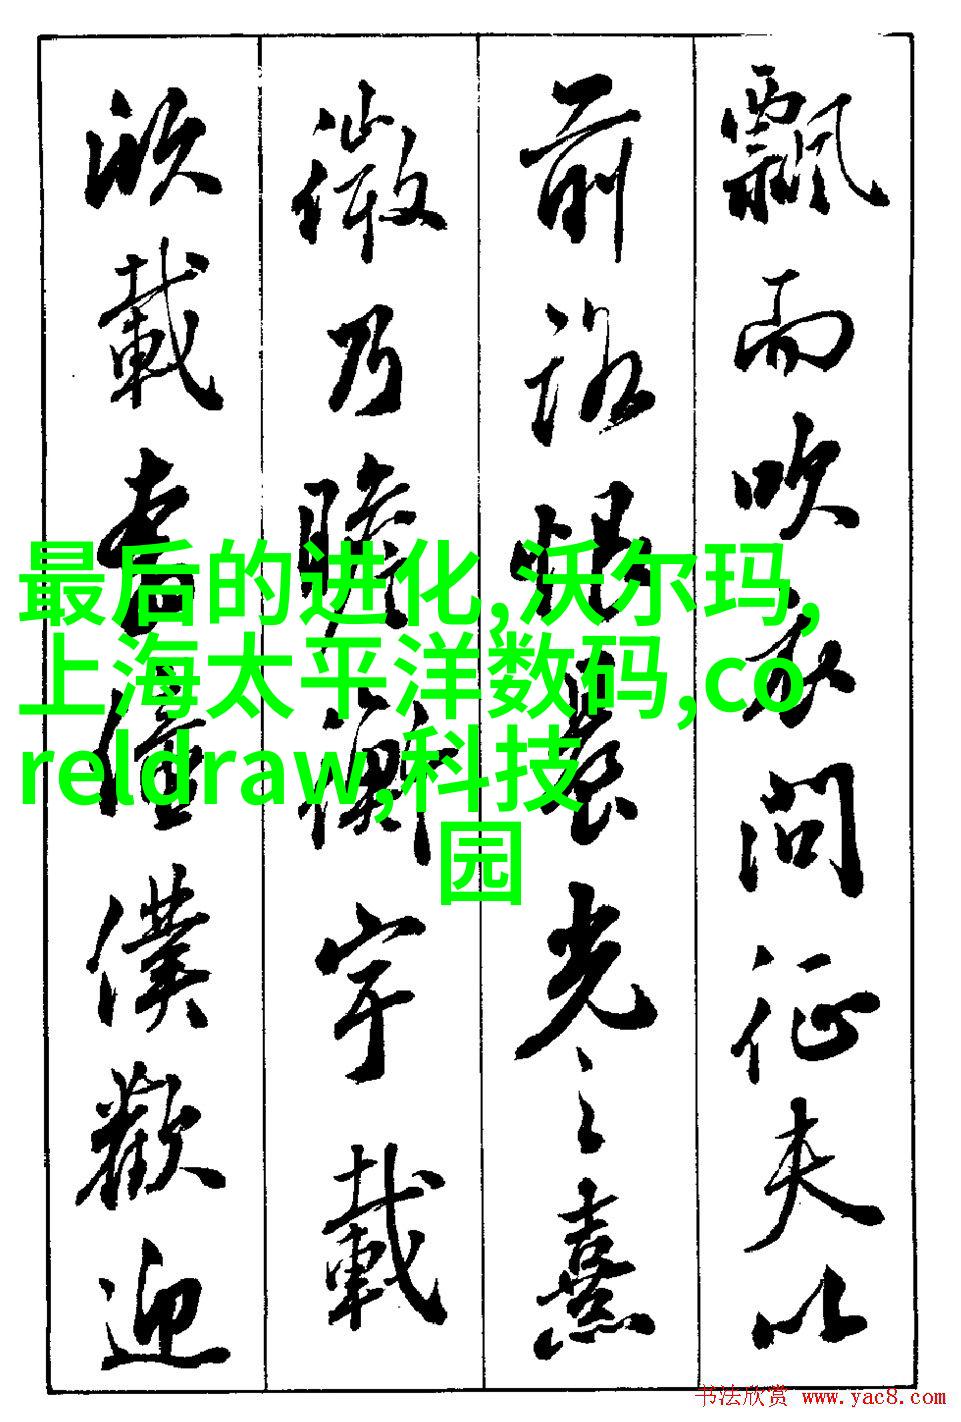 飄而吹衣問征夫以
前路恨晨光之熹
微乃瞻衡宇載
欣載奔僮僕歡迎
最后的进化,沃尔玛,
上海太平洋数码,co
reldraw,科技
园
书法欣赏 www.yac8.com